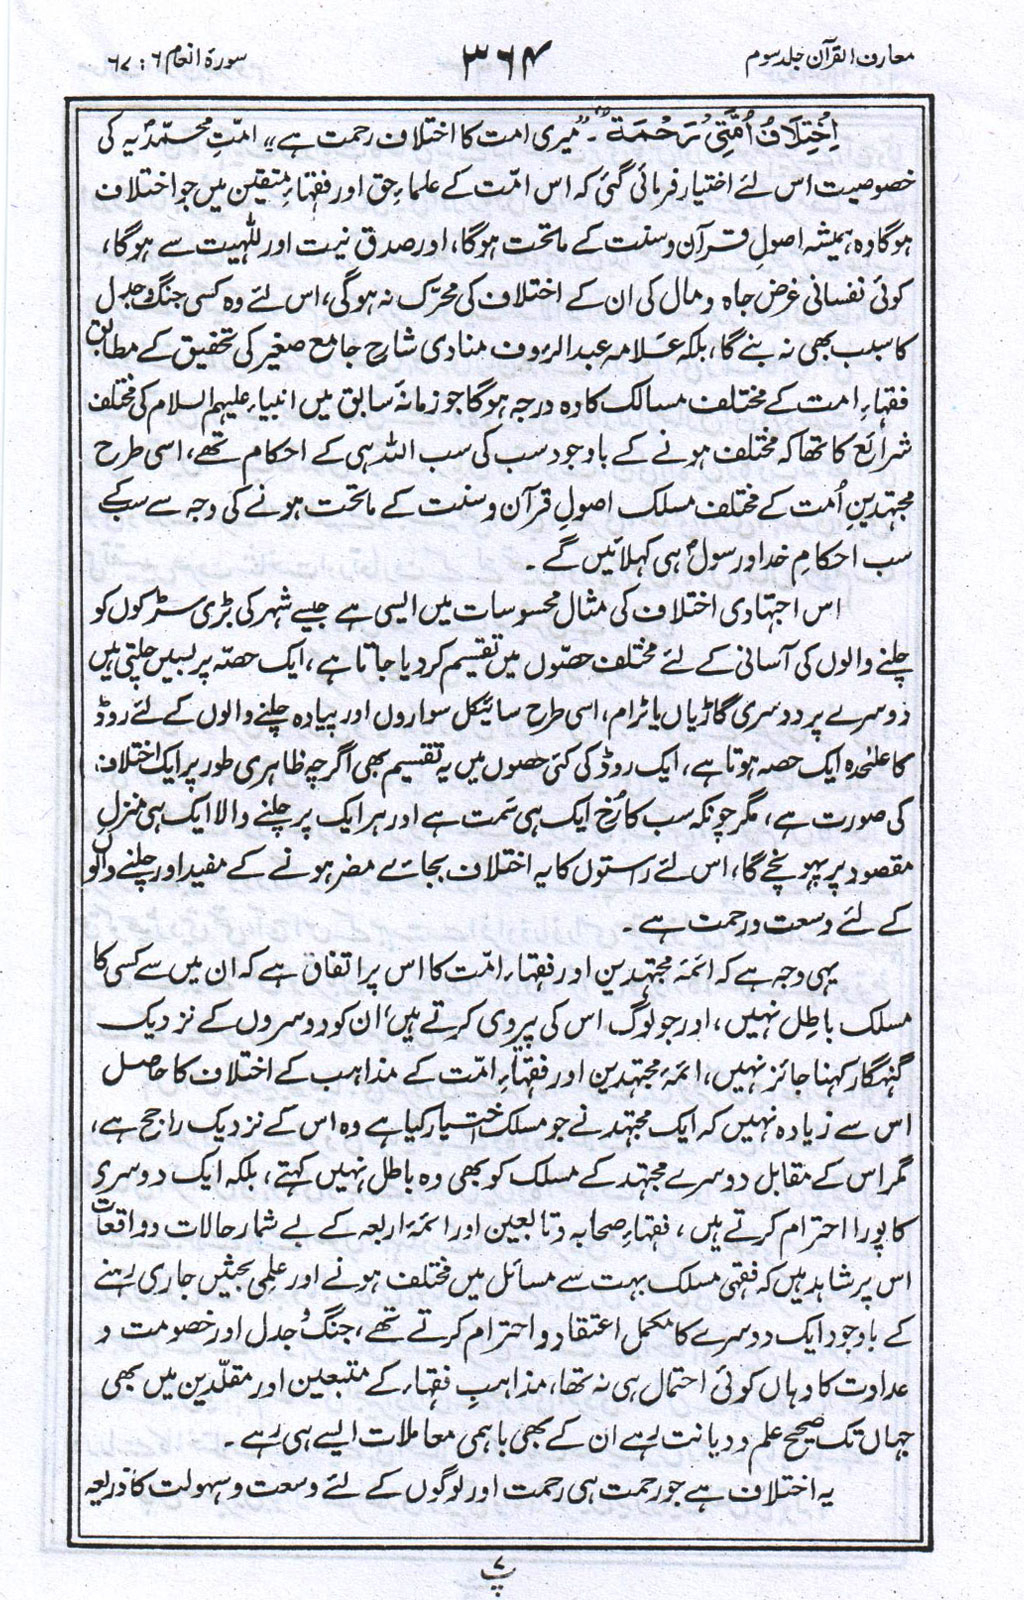 معارف القرآن جلد سوم
۳۶۴
سورۃ انعام ۶ : ۶۷
اِخْتِلَافُ اُمَّتِیْ رَحْمَةٌ"۔ "میری امت کا اختلاف رحمت ہے" امّتِ محمّدؐیہ کی
خصوصیت اس لئے اختیار فرمائی گئی کہ اس امّت کے علماءِ حق اور فقہاءِ متقین میں جو اختلاف
ہوگا وہ ہمیشہ اصولِ قرآن و سنت کے ماتحت ہوگا، اور صدق نیت اور للّٰہیت سے ہوگا،
کوئی نفسانی غرض جاہ و مال کی ان کے اختلاف کی محرّک نہ ہوگی، اس لئے وہ کسی جنگ و جدل
کا سبب بھی نہ بنے گا، بلکہ علامہ عبد الرؤف مناوی شارح جامع صغیر کی تحقیق کے مطابق
فقہاءِ امت کے مختلف مسالک کا وہ درجہ ہوگا جو زمانۂ سابق میں انبیاء علیہم السلام کی مختلف
شرائع کا تھا کہ مختلف ہونے کے باوجود سب کی سب اللہ ہی کے احکام تھے، اسی طرح
مجتہدینِ اُمت کے مختلف مسلک اصولِ قرآن و سنت کے ماتحت ہونے کی وجہ سے سب کے
سب احکامِ خدا و رسولؐ ہی کہلائیں گے ۔
اس اجتہادی اختلاف کی مثال محسوسات میں ایسی ہے جیسے شہر کی بڑی سڑکوں کو
چلنے والوں کی آسانی کے لئے مختلف حصّوں میں تقسیم کر دیا جاتا ہے، ایک حصّہ پر بسیں چلتی ہیں
دوسرے پر دوسری گاڑیاں یا ٹرام، اسی طرح سائیکل سواروں اور پیادہ چلنے والوں کے لئے روڈ
کا علٰحدہ ایک حصہ ہوتا ہے، ایک روڈ کی کئی حصوں میں یہ تقسیم بھی اگرچہ ظاہری طور پر ایک اختلاف
کی صورت ہے، مگر چونکہ سب کا رُخ ایک ہی سَمت ہے اور ہر ایک پر چلنے والا ایک ہی منزلِ
مقصود پر پہونچے گا، اس لئے راستوں کا یہ اختلاف بجائے مضر ہونے کے مفید اور چلنے والوں
کے لئے وسعت و رحمت ہے ۔
یہی وجہ ہے کہ ائمۂ مجتہدین اور فقہاءِ امّت کا اس پر اتفاق ہے کہ ان میں سے کسی کا
مسلک باطل نہیں، اور جو لوگ اس کی پیروی کرتے ہیں، ان کو دوسروں کے نزدیک
گنہگار کہنا جائز نہیں، ائمۂ مجتہدین اور فقہاءِ امّت کے مذاہب کے اختلاف کا حاصل
اس سے زیادہ نہیں کہ ایک مجتہد نے جو مسلک اختیار کیا ہے وہ اس کے نزدیک راجح ہے،
مگر اس کے مقابل دوسرے مجتہد کے مسلک کو بھی وہ باطل نہیں کہتے، بلکہ ایک دوسرے
کا پورا احترام کرتے ہیں، فقہاءِ صحابہ و تابعین اور ائمۂ اربعہ کے بے شمار حالات و واقعات
اس پر شاہد ہیں کہ فقہی مسلک بہت سے مسائل میں مختلف ہونے اور علمی بحثیں جاری رہنے
کے باوجود ایک دوسرے کا مکمل اعتقاد و احترام کرتے تھے، جنگ و جدل اور خصومت و
عداوت کا وہاں کوئی احتمال ہی نہ تھا، مذاہبِ فقہاء کے متبعین اور مقلّدین میں بھی
جہاں تک صحیح علم و دیانت رہے ان کے بھی باہمی معاملات ایسے ہی رہے ۔
یہ اختلاف ہے جو رحمت ہی رحمت اور لوگوں کے لئے وسعت و سہولت کا ذریعہ
پ ۷